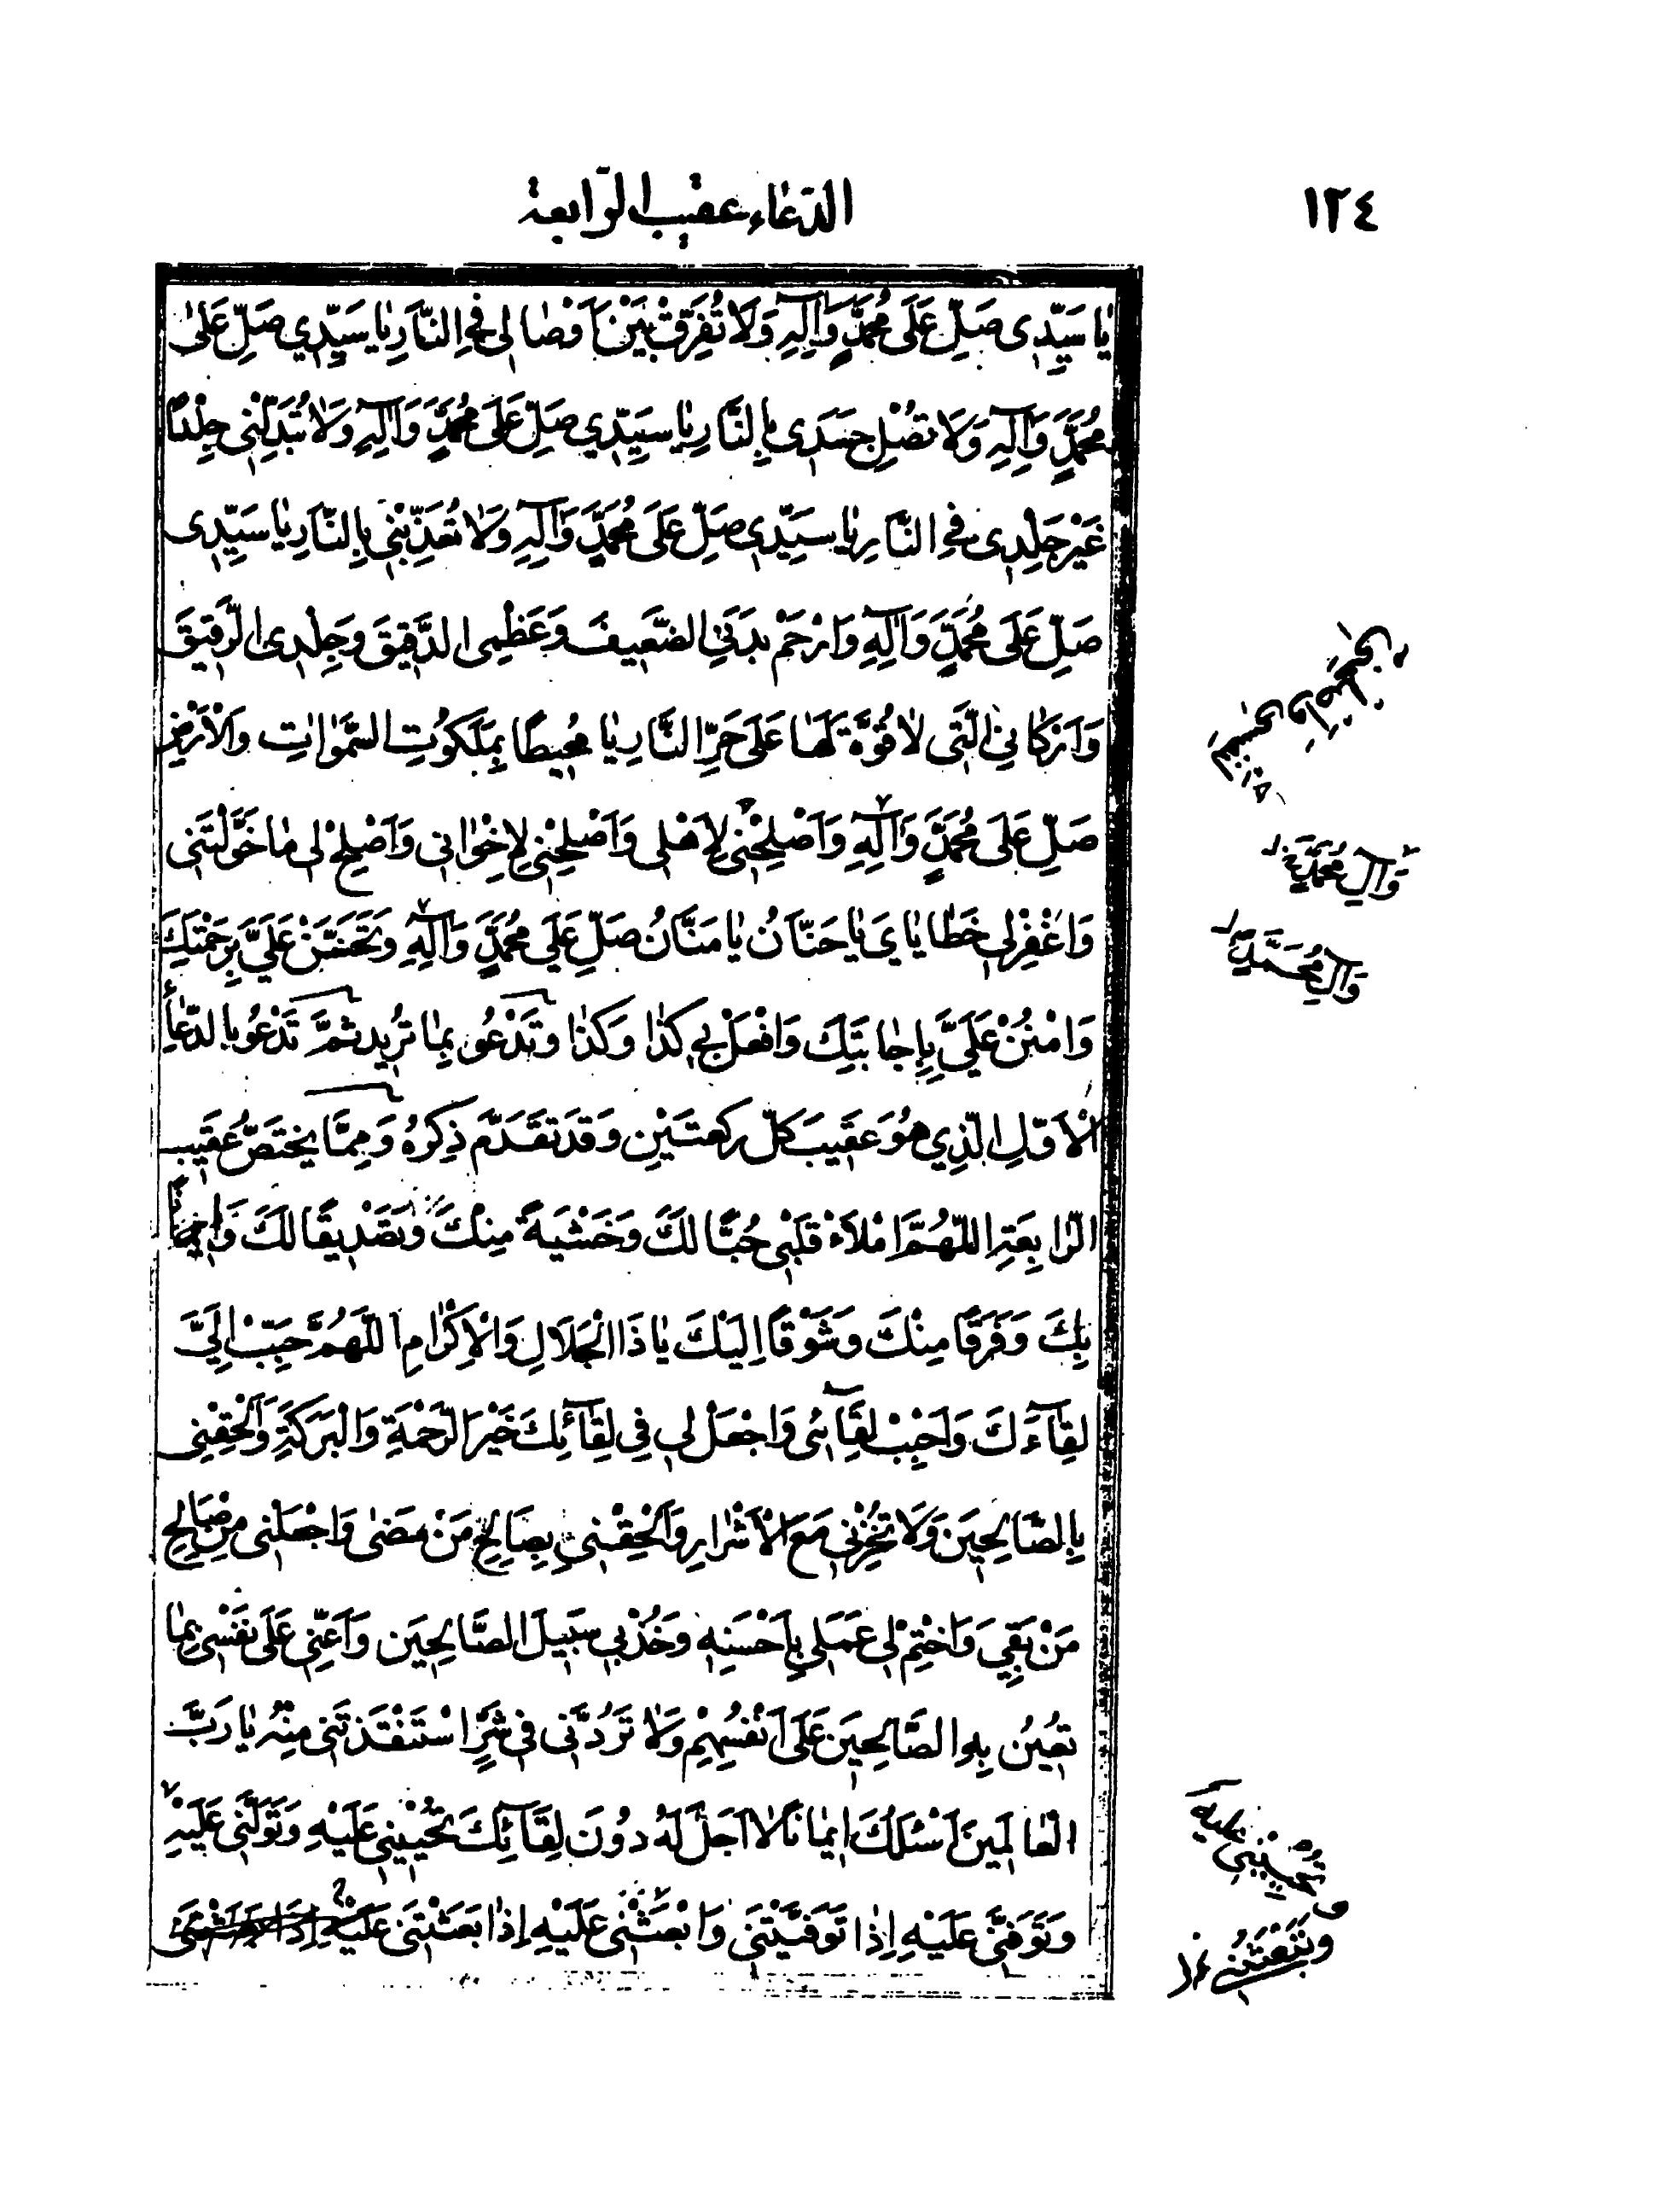 ١٢٤
الدّعاء عقيب الرّابعة
يٰا سَيِّدِى صَلِّ عَلَى مُحَمَّدٍ وَآلِهِ وَلَا تُفَرِّقْ بَيْنَ اَوْصٰالى فِى النّٰارِ يٰا سَيِّدِي صَلِّ عَلىٰ
مُحَمَّدٍ وَآلِهِ وَلَا تُصْلِ جَسَدِى بِالنَّارِ يٰا سَيِّدِي صَلِّ عَلىٰ مُحَمَّدٍ وَآلِهِ وَلاٰ تُبَدِّلْنِى جِلْدًا
غَيْرَ جِلْدِى فِى النَّارِ يٰا سَيِّدِى صَلِّ عَلَى مُحَمَّدٍ وَآلِهِ وَلاٰ تُعَذِّبْنِى بِالنّٰارِ يٰا سَيِّدِى
صَلِّ عَلَى مُحَمَّدٍ وَآلِهِ وَارْحَمْ بَدَنِيَ الضَّعِيفَ وَعَظْمِى الدَّقِيقَ وَجِلْدِى الرَّقِيقَ
وَاَرْكٰانِىَ الَّتِى لاٰ قُوَّةَ لَهٰا عَلَى حَرِّ النَّارِ يٰا مُحِيطًا بِمَلَكُوتِ السَّمٰوٰاتِ وَالْاَرْضِ
صَلِّ عَلَى مُحَمَّدٍ وَآلِهِ وَاَصْلِحْنِى لِاَهْلِى وَاَصْلِحْنِى لِاِخْوٰانِى وَاَصْلِحْ لِى مٰا خَوَّلْتَنِى
وَاغْفِرْلِى خَطٰايٰاىَ يٰا حَنّٰانُ يٰا مَنّٰانُ صَلِّ عَلَى مُحَمَّدٍ وَآلِهِ وَتَحَنَّنْ عَلَيَّ بِرَحْمَتِكَ
وَامْنُنْ عَلَيَّ بِاِجٰابَتِكَ وَافْعَلْ بِى كَذٰا وَكَذٰا وَتَدْعُو بِمٰا تُرِيد ثُمَّ تَدْعُو بِالدّعٰاءِ
الْاَوّلِ الّذِي هُوَ عَقِيبَ كلّ ركعَتَيْنِ وَقَدتَقَدَّم ذِكرُهُ وَمِمَّا يختَصّ عَقِيب
الرّابِعَةِ اللّهُمَّ امْلَاءْ قَلْبِى حُبًّا لَكَ وَخَشْيَةً مِنْكَ وَتَصْدِيقًا لَكَ وَاِيمٰانًا
بِكَ وَفَرَقًا مِنْكَ وَشَوْقًا اِلَيْكَ يٰا ذَا الْجَلَالِ وَالْاِكْرٰامِ اللّهُمَّ حَبِّبْ اِلَيَّ
لِقٰاءَكَ وَاَحْبِبْ لِقٰائى وَاجْعَلْ لى فى لِقٰائِكَ خَيْرَ الرَّحْمَةِ وَالْبَرَكَةِ وَاَلْحِقْنِى
بِالصَّالِحِينَ وَلَا تُخْزِنِى مَعَ الْاَشْرٰارِ وَاَلْحِقْنِى بِصٰالِحِ مَنْ مَضىٰ وَاجْعَلْنِى مِنْ صٰالِحِ
مَنْ بَقِيَ وَاخْتِمْ لِى عَمَلِى بِاَحْسَنِهِ وَخُذْ بِى سَبِيلَ الصَّالِحِينَ وَاَعِنِّى عَلَى نَفْسِى بِمٰا
تُعِينُ بِهِ الصَّالِحِينَ عَلَى اَنْفُسِهِمْ وَلاٰ تَرُدَّنِى فِى شَرٍّ اسْتَنْقَذْتَنِى مِنْهُ يٰا رَبَّ
الْعٰالَمِينَ اَسْئَلُكَ اِيمٰانًا لاٰ اَجَلَ لَهُ دُونَ لِقَائِكَ تُحْيِينِى عَلَيْهِ وَتَوَلَّنِى عَلَيْهِ
وَتَوَفَّنِى عَلَيْهِ اِذٰا تَوَفَّيْتَنِى وَابْعَثْنِى عَلَيْهِ اِذٰا بَعَثْتَنِى عَلَيْهِ
وَآلِ مُحَمَّدٍ
وَآلِ مُحَمَّدٍ
وَتَبْعَثُنِى